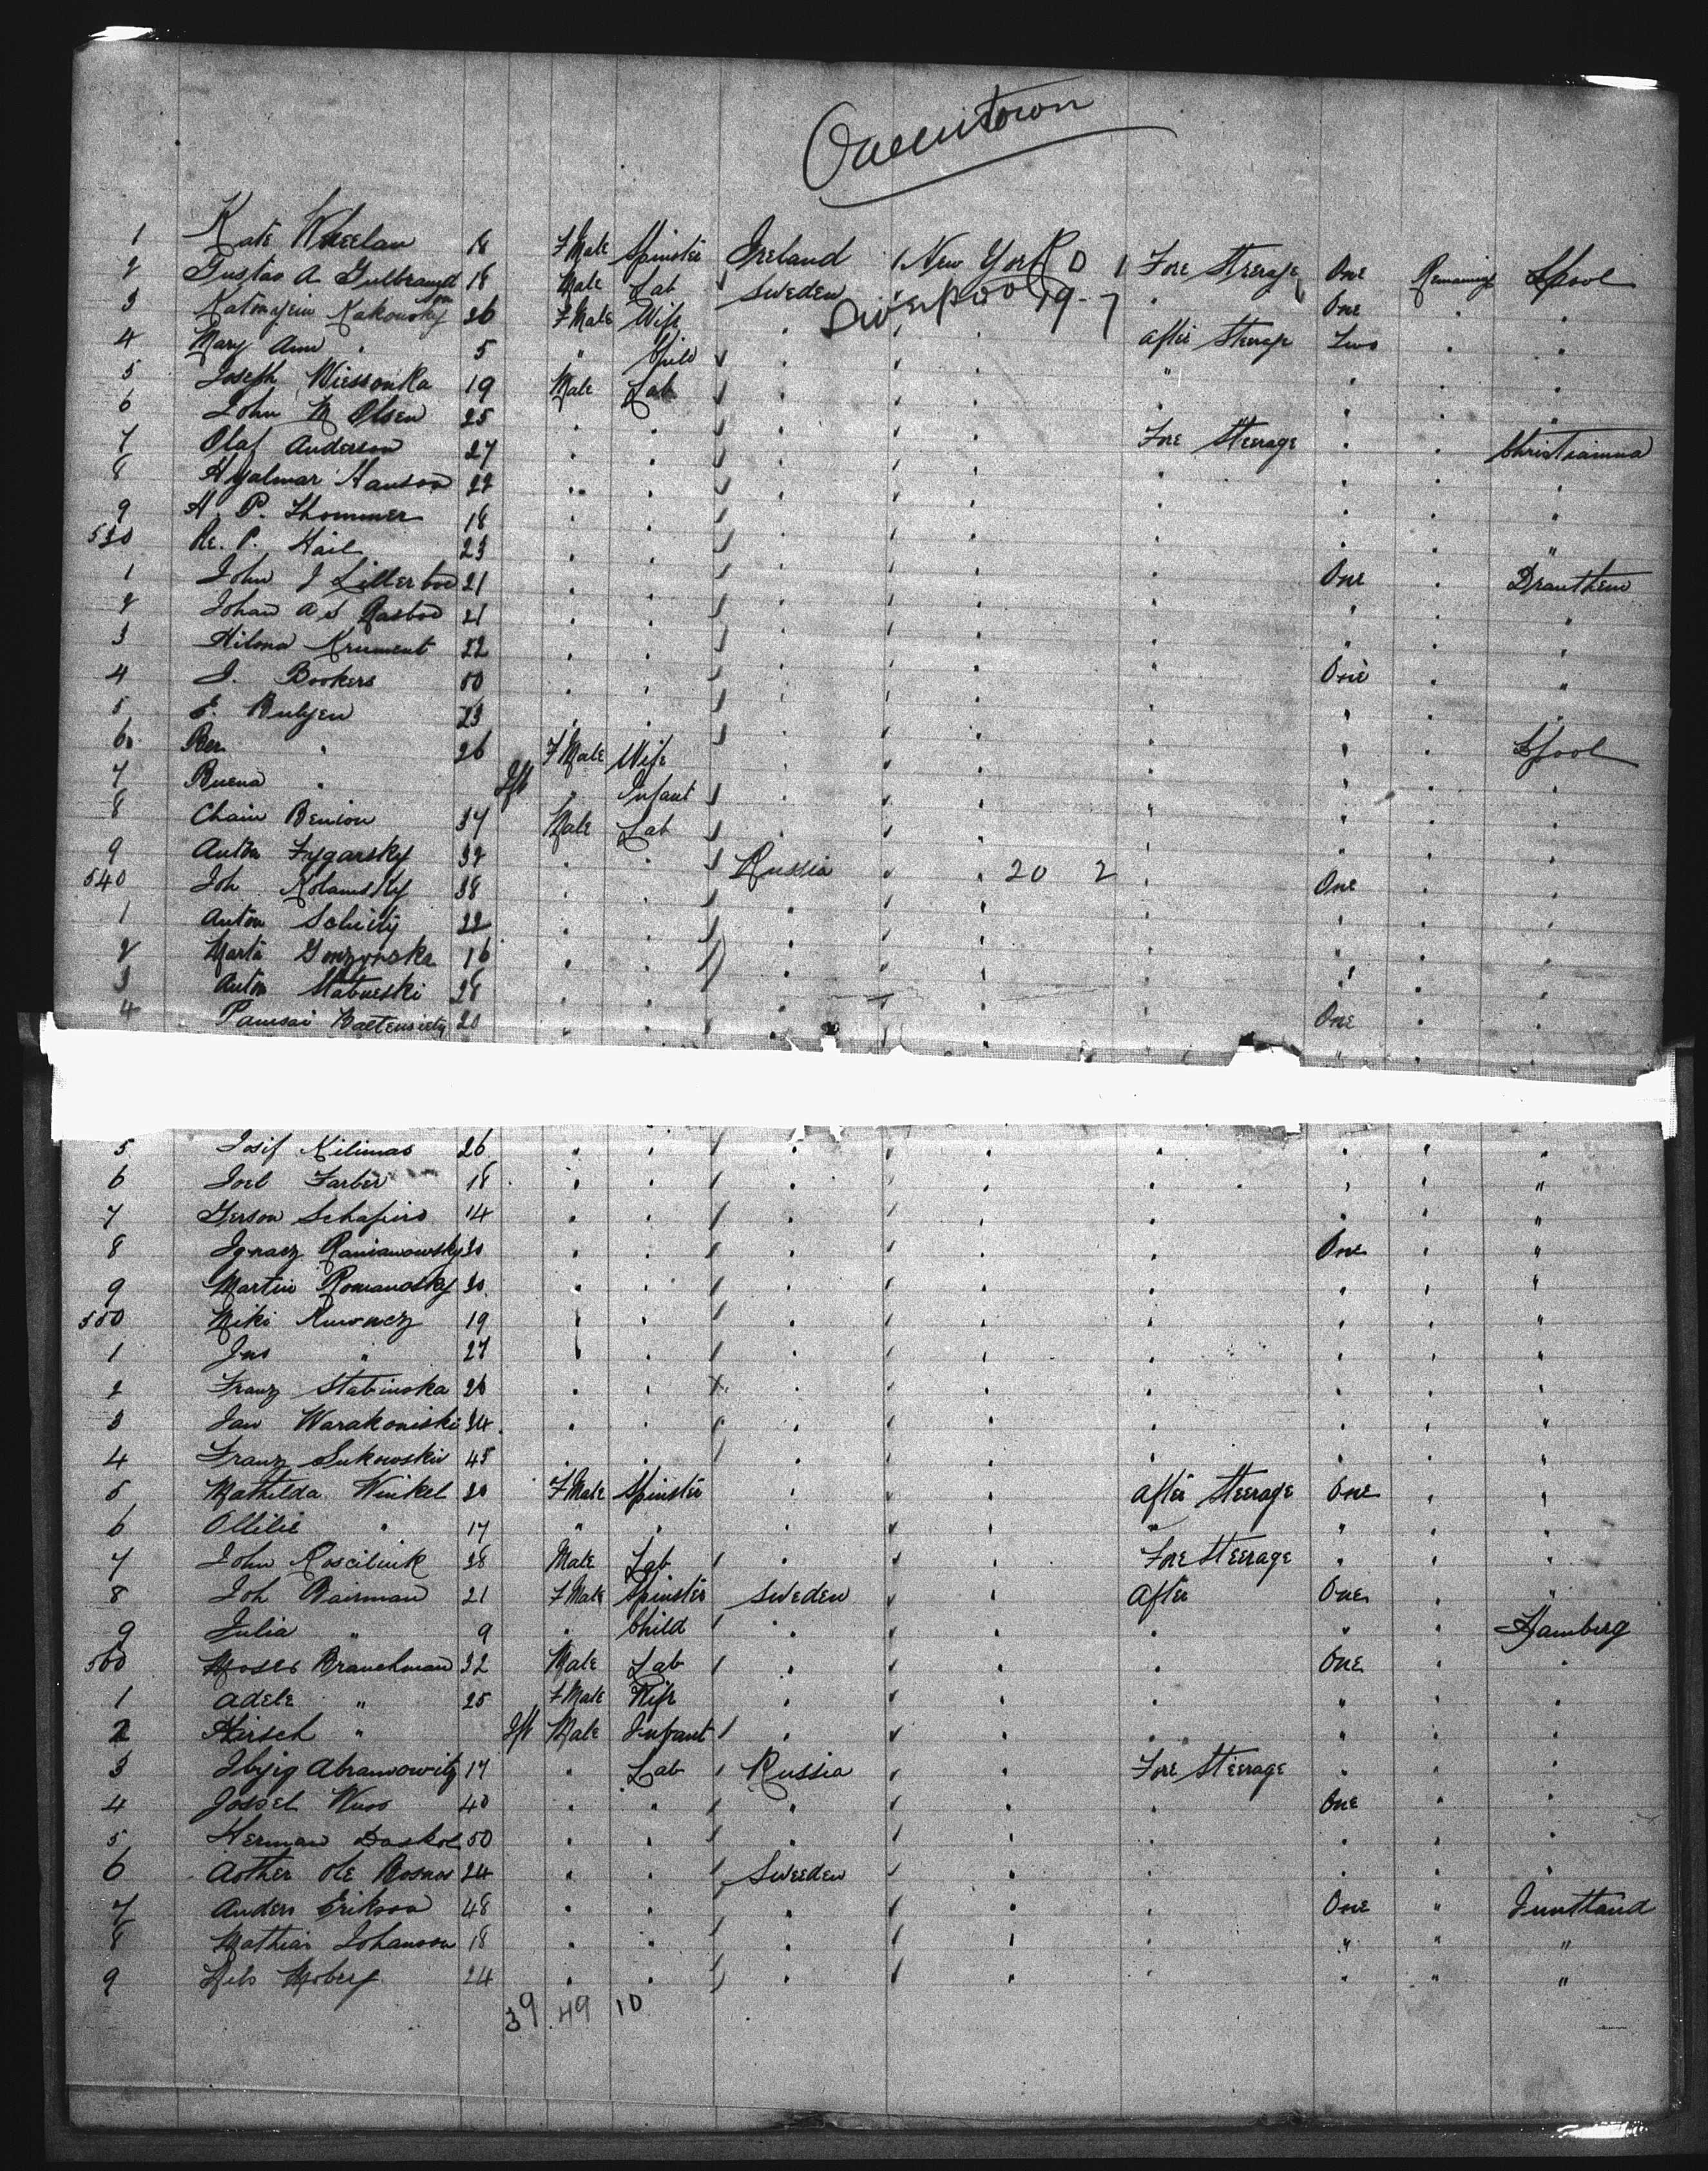 Queenstown
1 Kate Wheelan 18 FMale Spinster Ireland New York 0 1 Fore Steerage One Remaining Lpool
2 Gustav A. Gulbrandson 18 Male Lab Sweden " One " "
Liverpool 19-7
3 Kakowsky 26 FMale Wife After Steerage Two
4 Mary Ann " 5 " Child
5 Joseph Wiessonka 19 Male Lab
6 John M Olsen 25
7 Olaf Anderson 27 Fore Steerage Christianna
8 Hjalmar Hanson 22
9 H. P. Thommer 18
530 P. Hail 23
1 John J Lillerboe 21 One Drantheim
2 Johan A S 21
3 Hilona Krument 22
4 S. Bookers 50 One
5 E. Bulyen 23
6 Ber " 26 FMale Wife Lpool
7 Buena " Ift Infant
8 Chaim Benion 37 Male Lab
9 Anton Zygarsky 32 Russia 20 2
540 Joh Kolamsky 38 One
1 Anton 22
2 Marta 16
3 Anton Stabneski 28
4 20 One
5 Josif Kilimas 26
6 Joel Farber 18
7 Gerson Schapiro 14
8 Ignacz Ramanowsky 20 One
9 Martin Romanosky 30
550 Miki 19
1 Jns " 27
2 Franz Stabinska 26
3 Jan Warakoniski 34
4 Franz Sukowskiv 45
5 Mathilda Winkel 20 FMale Spinster After Steerage One
6 Ottilie " 17
7 John Koscilink 28 Male Lab Fore Steerage
8 Joh Bairman 21 FMale Spinster Sweden After One
9 Julia " 9 Child Hamberg
560 Moses Branchman 32 Male Lab One
1 Adele " 25 FMale Wife
2 Hirsch " Ift Male Infant
3 Abramowitz 17 Lab Russia Fore Steerage
4 Jossel Wuss 40 One
5 Herman Daskol 50
6 Ole 24 Sweden
7 Anders Erikson 48 One
8 Mathias Johanson 18
9 Nils Moberg 24
39 49 10